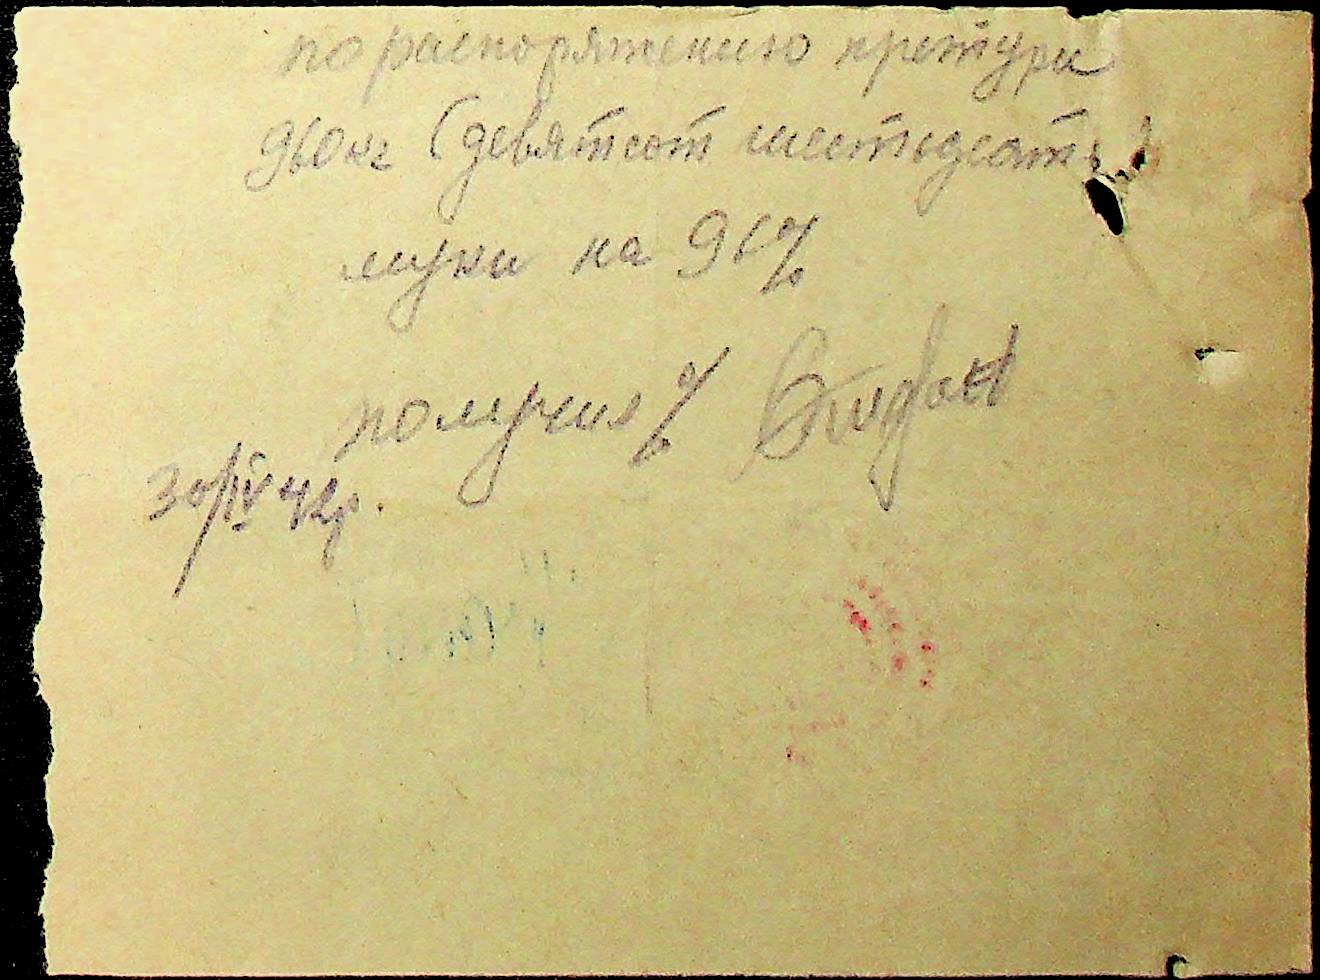 по распоряжению претуры
960 кг (девятсот шестьдесят)
муки на 96%
получил
30/IV 42г.